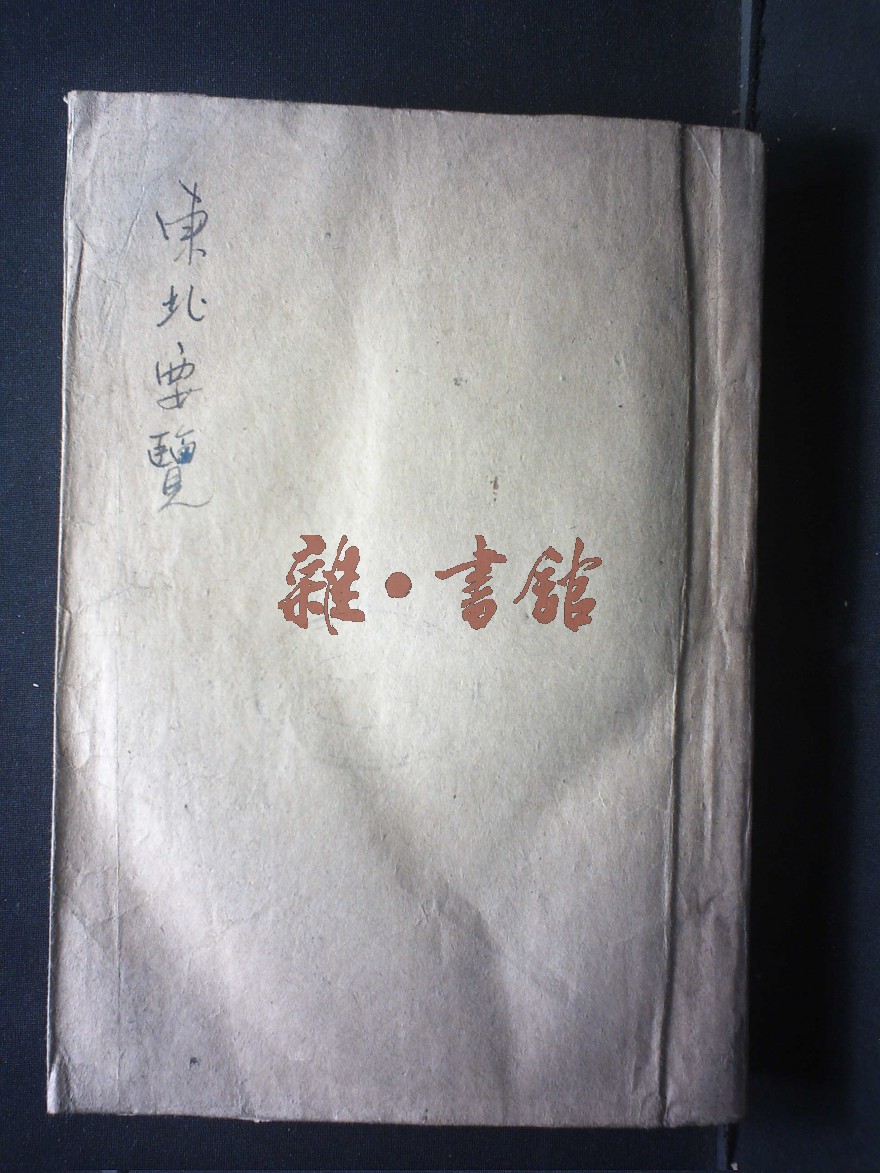 東北要覽
雜·書館